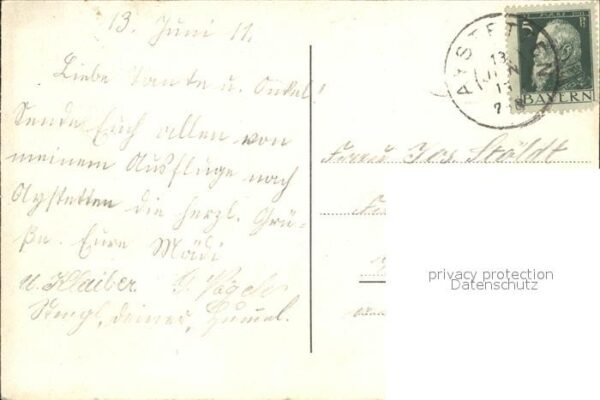 13. Juni 11.
Liebe Tante u. Onkel!
Sende Euch allen von
meinem Ausfluge nach
Aystetten die herzl. Grü-
ße. Eure Mädi
u. Klaiber G. Vogel
Hummel.
AYSTETTEN
13
JUN
5
BAYERN
Jos. Stöldt
privacy protection
Datenschutz